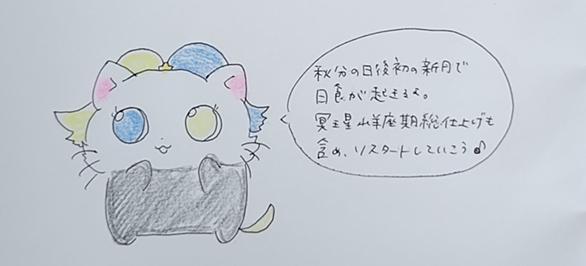 秋分の日後初の新月で
日食が起きるよ。
冥王星山羊座期総仕上げも
含め、リスタートしていこう♪